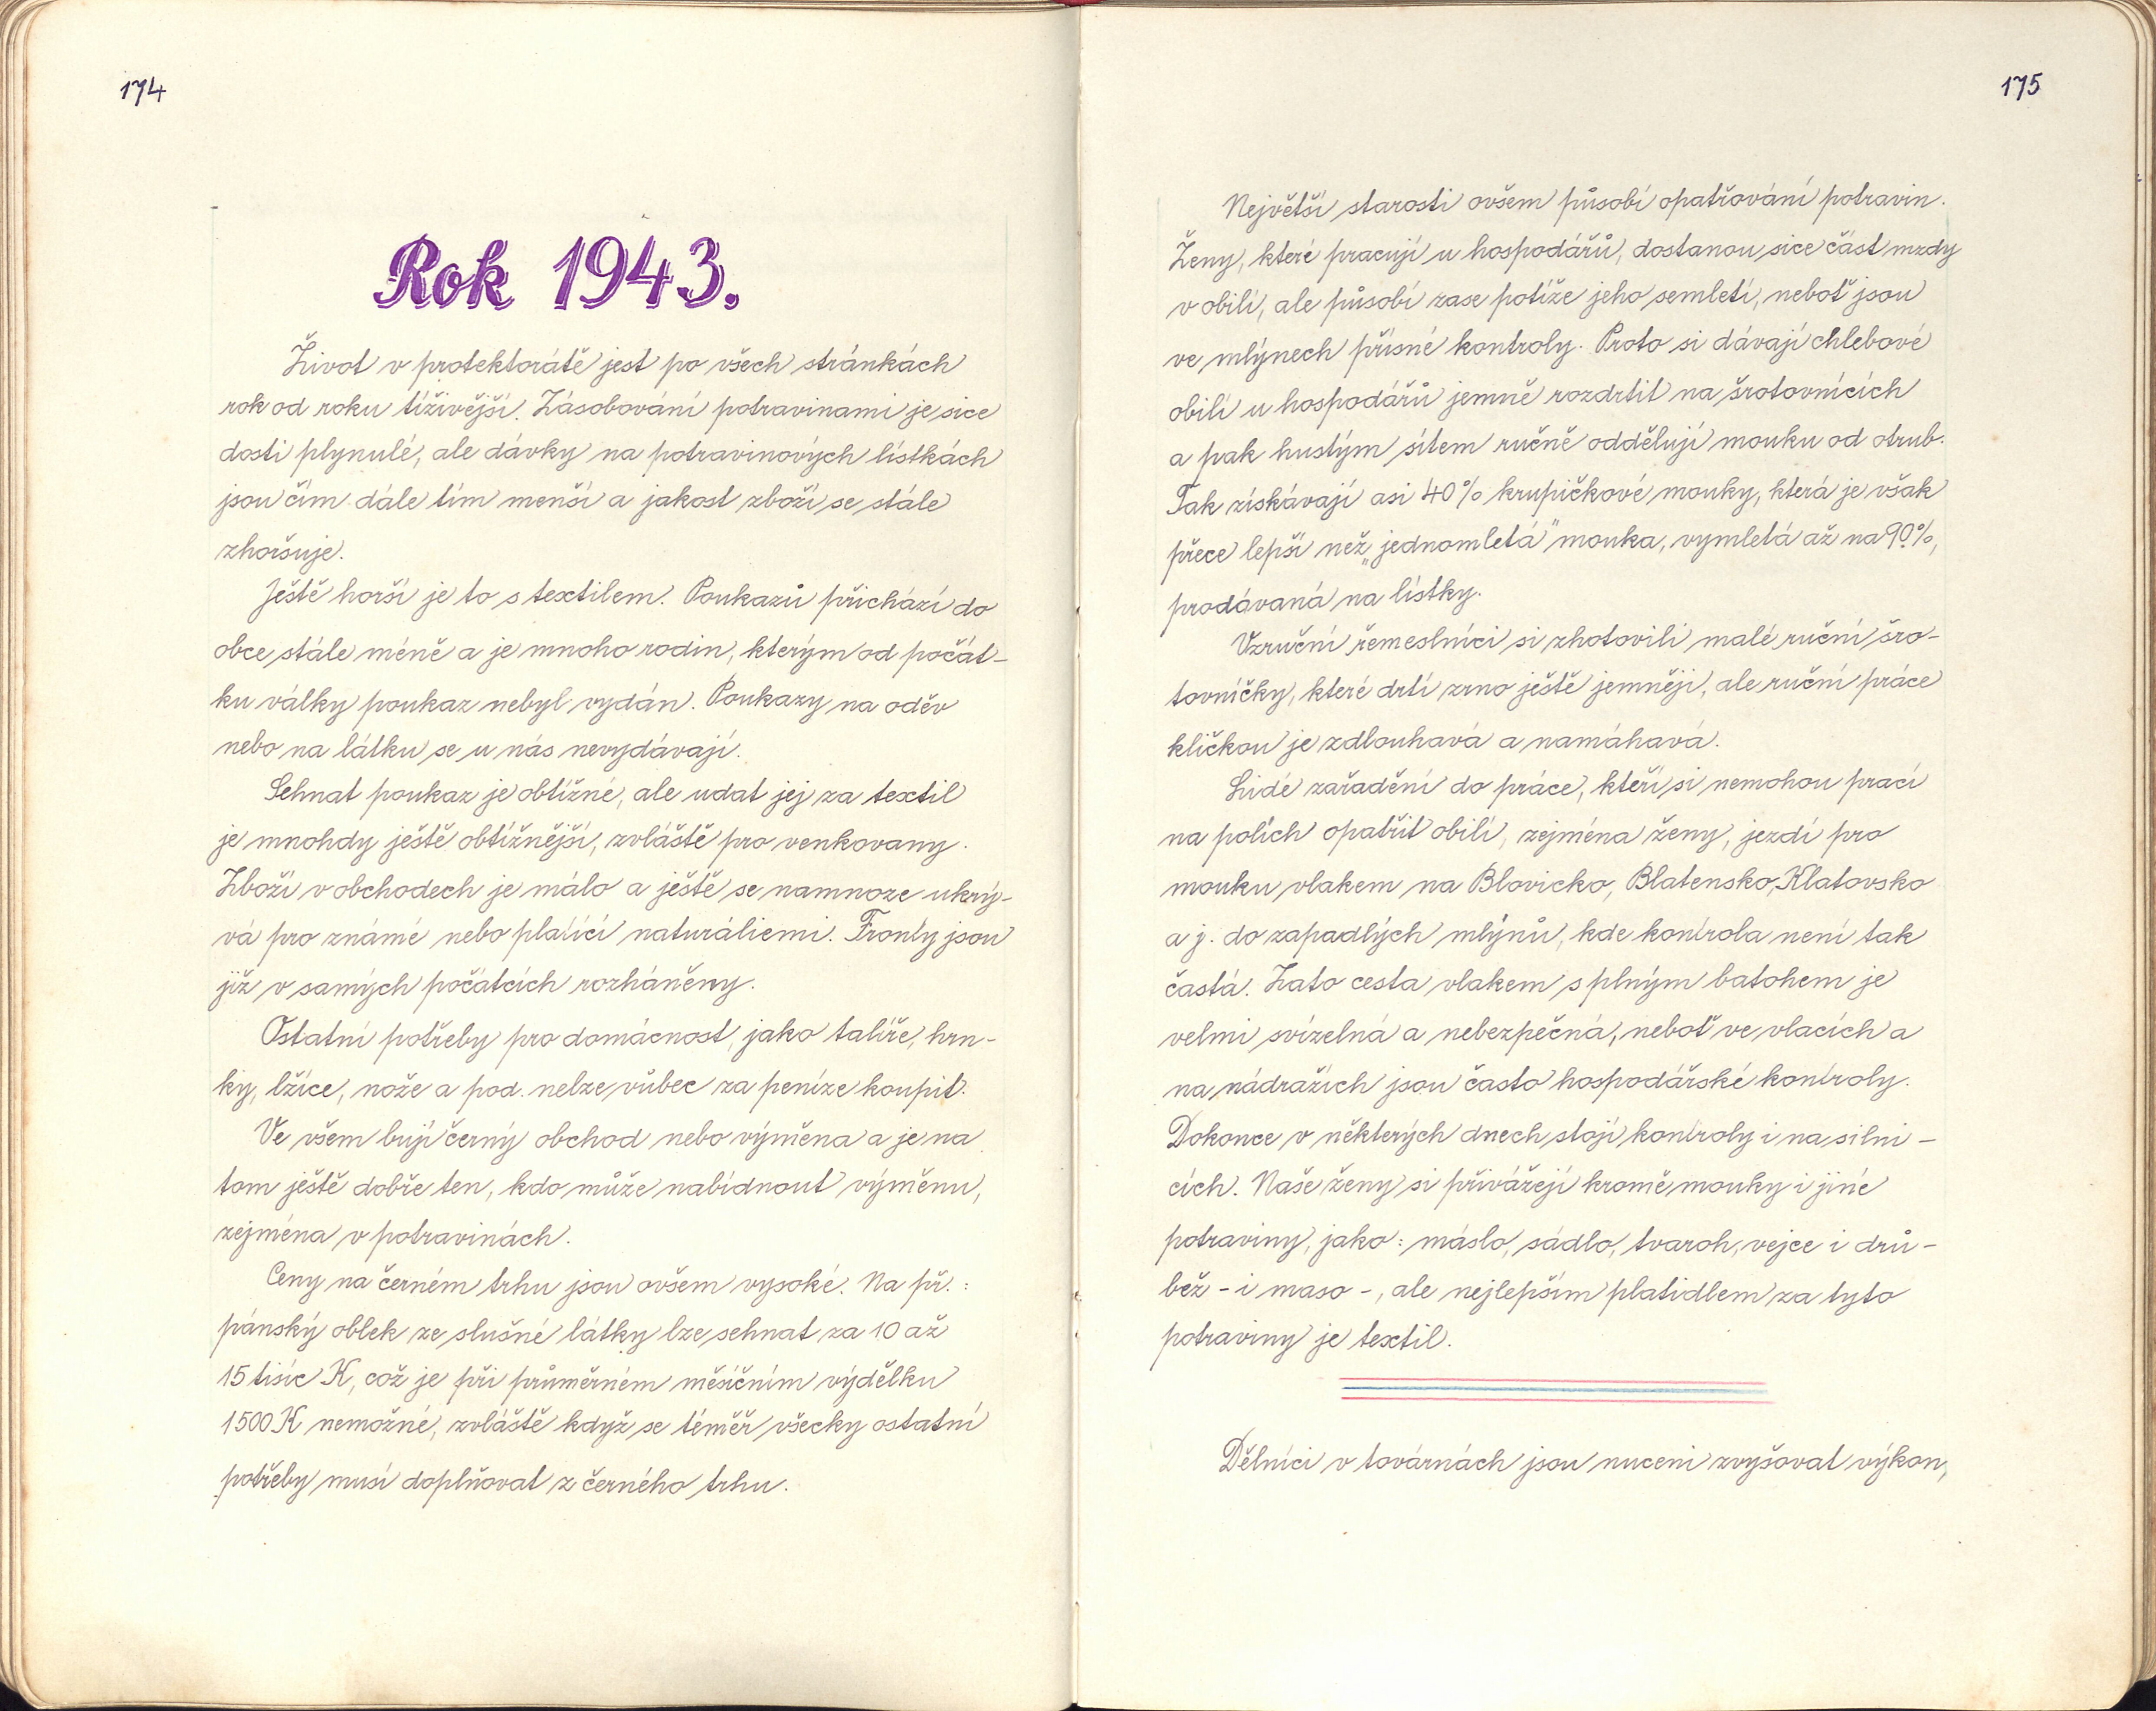 174
Rok 1943.
Život v protektorátě jest po všech stránkách
rok od roku tíživější. Zásobování potravinami je sice
dosti plynulé, ale dávky na potravinových lístkách
jsou čím dále tím menší a jakost zboží se stále
zhoršuje.
Ještě horší je to s textilem. Poukazů přichází do
obce stále méně a je mnoho rodin, kterým od počát-
ku války poukaz nebyl vydán. Poukazy na oděv
nebo na látku se u nás nevydávají.
Sehnat poukaz je obtížné, ale udat jej za textil
je mnohdy ještě obtížnější, zvláště pro venkovany.
Zboží v obchodech je málo a ještě se namnoze ukrý-
vá pro známé nebo platící naturáliemi. Fronty jsou
již v samých počátcích rozháněny.
Ostatní potřeby pro domácnost, jako talíře, hrn-
ky, lžíce, nože a pod. nelze vůbec za peníze koupit.
Ve všem bují černý obchod nebo výměna a je na
tom ještě dobře ten, kdo může nabídnout výměnu,
zejména v potravinách.
Ceny na černém trhu jsou ovšem vysoké. Na př.:
pánský oblek ze slušné látky lze sehnat za 10 až
15 tisíc K, což je při průměrném měsíčním výdělku
1500 K nemožné, zvláště když se téměř všecky ostatní
potřeby musí doplňovat z černého trhu.
175
Největší starosti ovšem působí opatřování potravin.
Ženy, které pracují u hospodářů, dostanou sice část mzdy
v obilí, ale působí zase potíže jeho semletí, neboť jsou
ve mlýnech přísné kontroly. Proto si dávají chlebové
obilí u hospodářů jemně rozdrtit na šrotovnících
a pak hustým sítem ručně oddělují mouku od otrub.
Tak získávají asi 40% krupičkové mouky, která je však
přece lepší než „jednomletá" mouka, vymletá až na 90%,
prodávaná na lístky.
Vzruční řemeslníci si zhotovili malé ruční šro-
tovničky, které drtí zrno ještě jemněji, ale ruční práce
kličkou je zdlouhavá a namáhavá.
Lidé zařadění do práce, kteří si nemohou prací
na polích opatřit obilí, zejména ženy, jezdí pro
mouku vlakem na Blovicko, Blatensko, Klatovsko
a j. do zapadlých mlýnů, kde kontrola není tak
častá. Zato cesta vlakem s plným batohem je
velmi svízelná a nebezpečná, neboť ve vlacích a
na nádražích jsou často hospodářské kontroly.
Dokonce v některých dnech stojí kontroly i na silni-
cích. Naše ženy si přivážejí kromě mouky i jiné
potraviny, jako: máslo, sádlo, tvaroh, vejce i drů-
bež - i maso -, ale nejlepším platidlem za tyto
potraviny je textil.
Dělníci v továrnách jsou nuceni zvyšovat výkon,